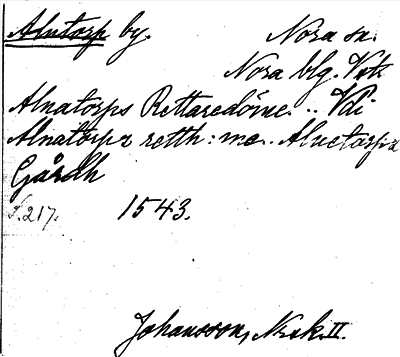 Alntorp by. Nora sn.
Nora blg. Vstr
Alnatorps Rettaredöme .. Vdi
Alnatorpz retth: me .. Alnetorpz
Gårdh
s. 217. 1543.
Johansson, Norask. II.